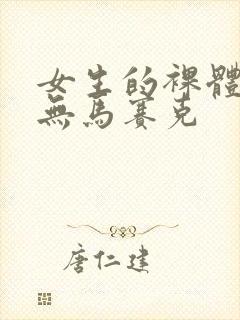 女生的裸體
無馬賽克
唐仁建